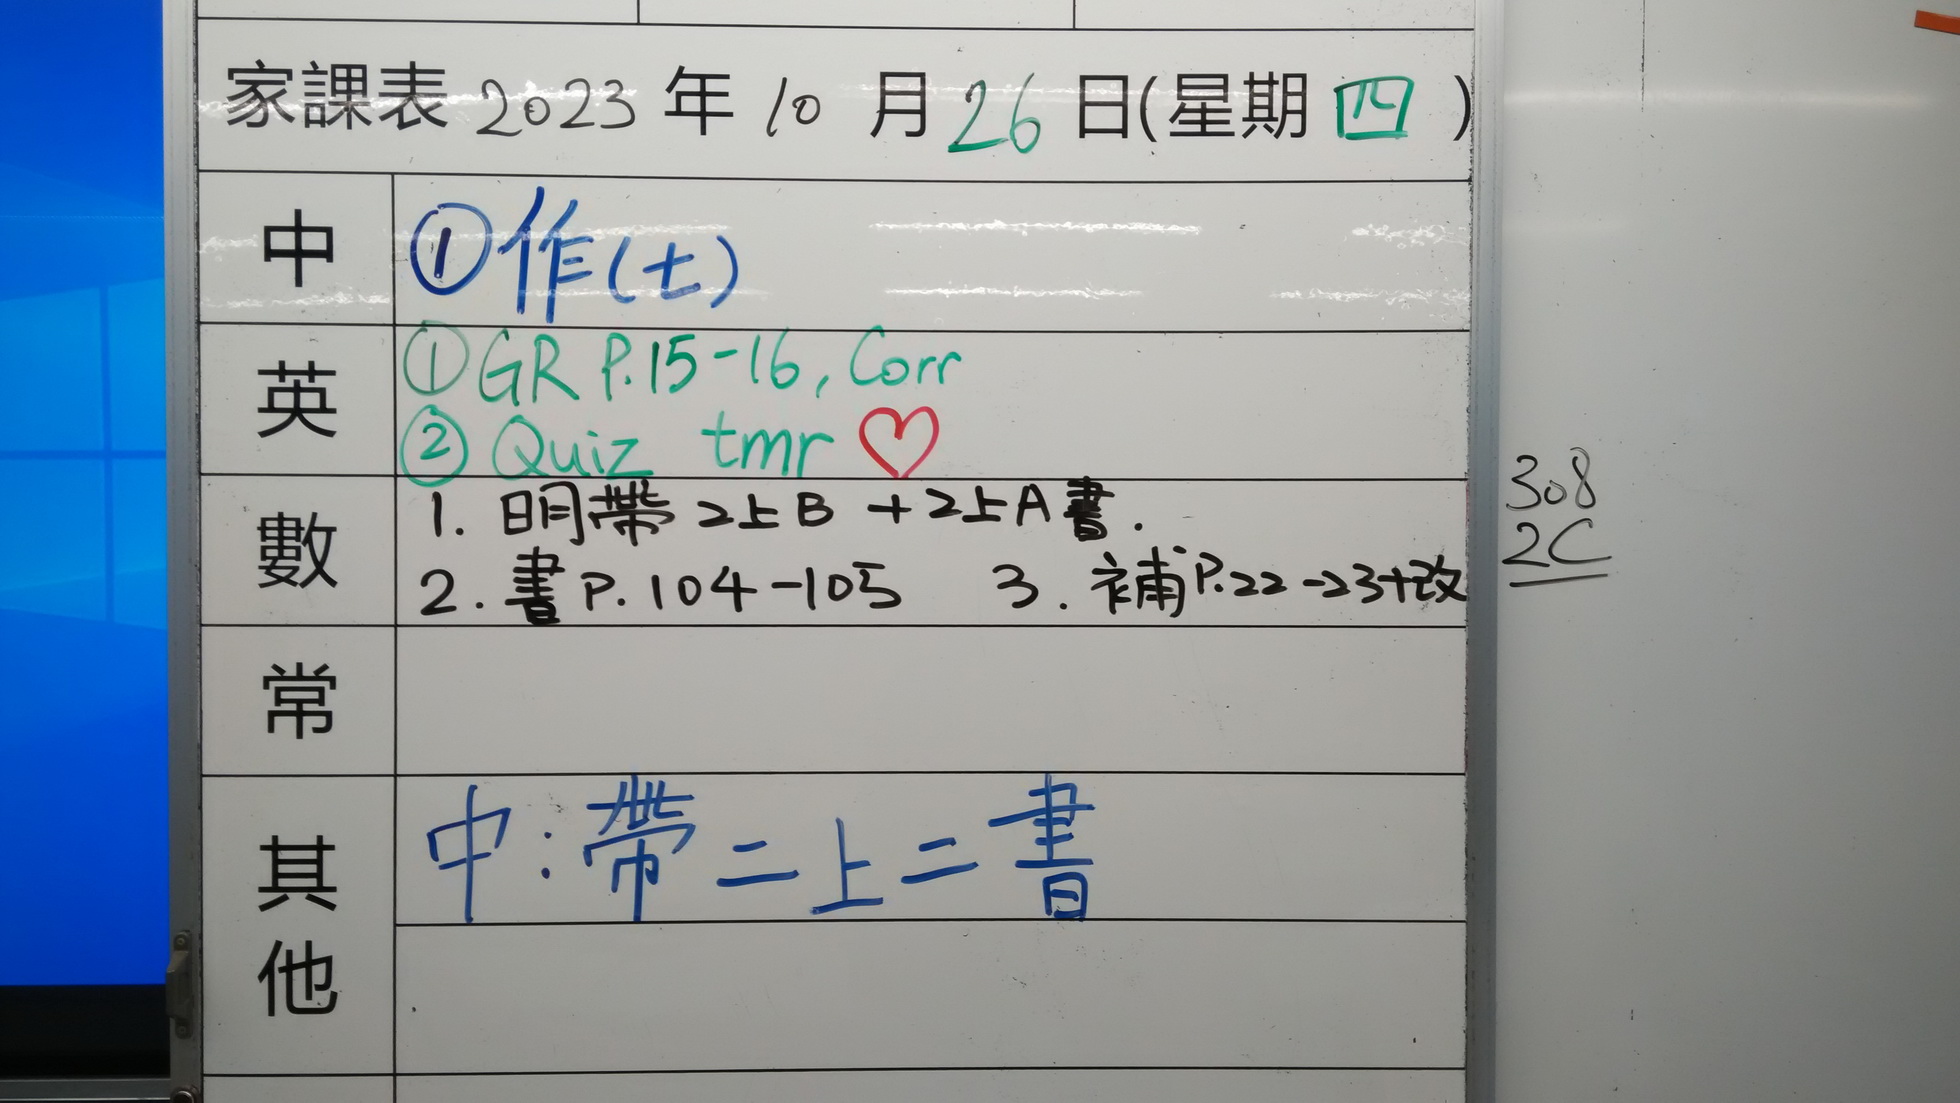 家課表 2023 年 10 月 26 日(星期 四 )
中
① 作(七)
英
① GR P.15-16, Corr
② Quiz tmr ♡
數
1. 明帶 2上B + 2上A書.
2. 書 P.104-105 3. 補 P.22-23+改
308
2C
常
其他
中:帶二上二書